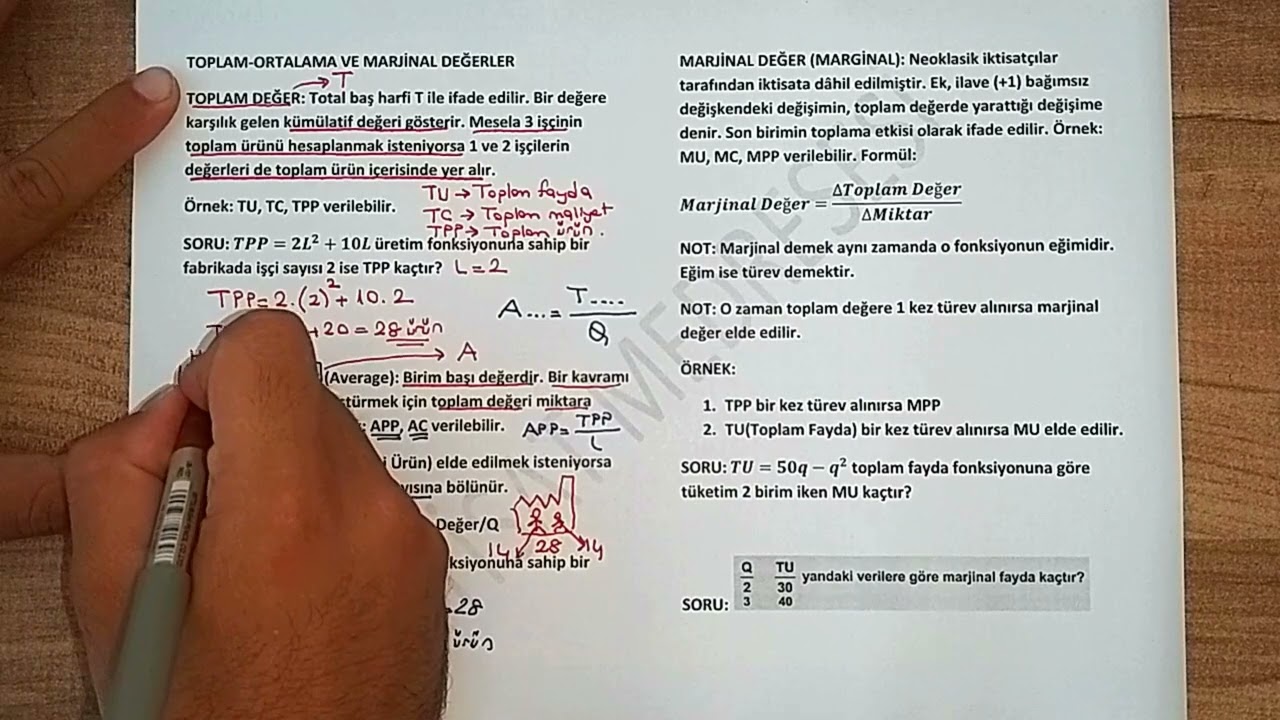 TOPLAM-ORTALAMA VE MARJİNAL DEĞERLER
→ T
TOPLAM DEĞER: Total baş harfi T ile ifade edilir. Bir değere
karşılık gelen kümülatif değeri gösterir. Mesela 3 işçinin
toplam ürünü hesaplanmak isteniyorsa 1 ve 2 işçilerin
değerleri de toplam ürün içerisinde yer alır.
TU → Toplam fayda
Örnek: TU, TC, TPP verilebilir.
TC → Toplam maliyet
TPP → Toplam ürün.
SORU: TPP = 2L² + 10L üretim fonksiyonuna sahip bir
fabrikada işçi sayısı 2 ise TPP kaçtır? L = 2
TPP = 2.(2)² + 10.2
+ 20 = 28 ürün
A... = T.... / Q
→ A
(Average): Birim başı değerdir. Bir kavramı
için toplam değeri miktara
APP, AC verilebilir. APP = TPP / L
Ürün) elde edilmek isteniyorsa
bölünür.
Değer/Q
14 28 14
sahip bir
28
ürün
MARJİNAL DEĞER (MARGİNAL): Neoklasik iktisatçılar
tarafından iktisata dâhil edilmiştir. Ek, ilave (+1) bağımsız
değişkendeki değişimin, toplam değerde yarattığı değişime
denir. Son birimin toplama etkisi olarak ifade edilir. Örnek:
MU, MC, MPP verilebilir. Formül:
Marjinal Değer = ΔToplam Değer / ΔMiktar
NOT: Marjinal demek aynı zamanda o fonksiyonun eğimidir.
Eğim ise türev demektir.
NOT: O zaman toplam değere 1 kez türev alınırsa marjinal
değer elde edilir.
ÖRNEK:
1. TPP bir kez türev alınırsa MPP
2. TU(Toplam Fayda) bir kez türev alınırsa MU elde edilir.
SORU: TU = 50q − q² toplam fayda fonksiyonuna göre
tüketim 2 birim iken MU kaçtır?
Q TU
yandaki verilere göre marjinal fayda kaçtır?
2 30
SORU: 3 40